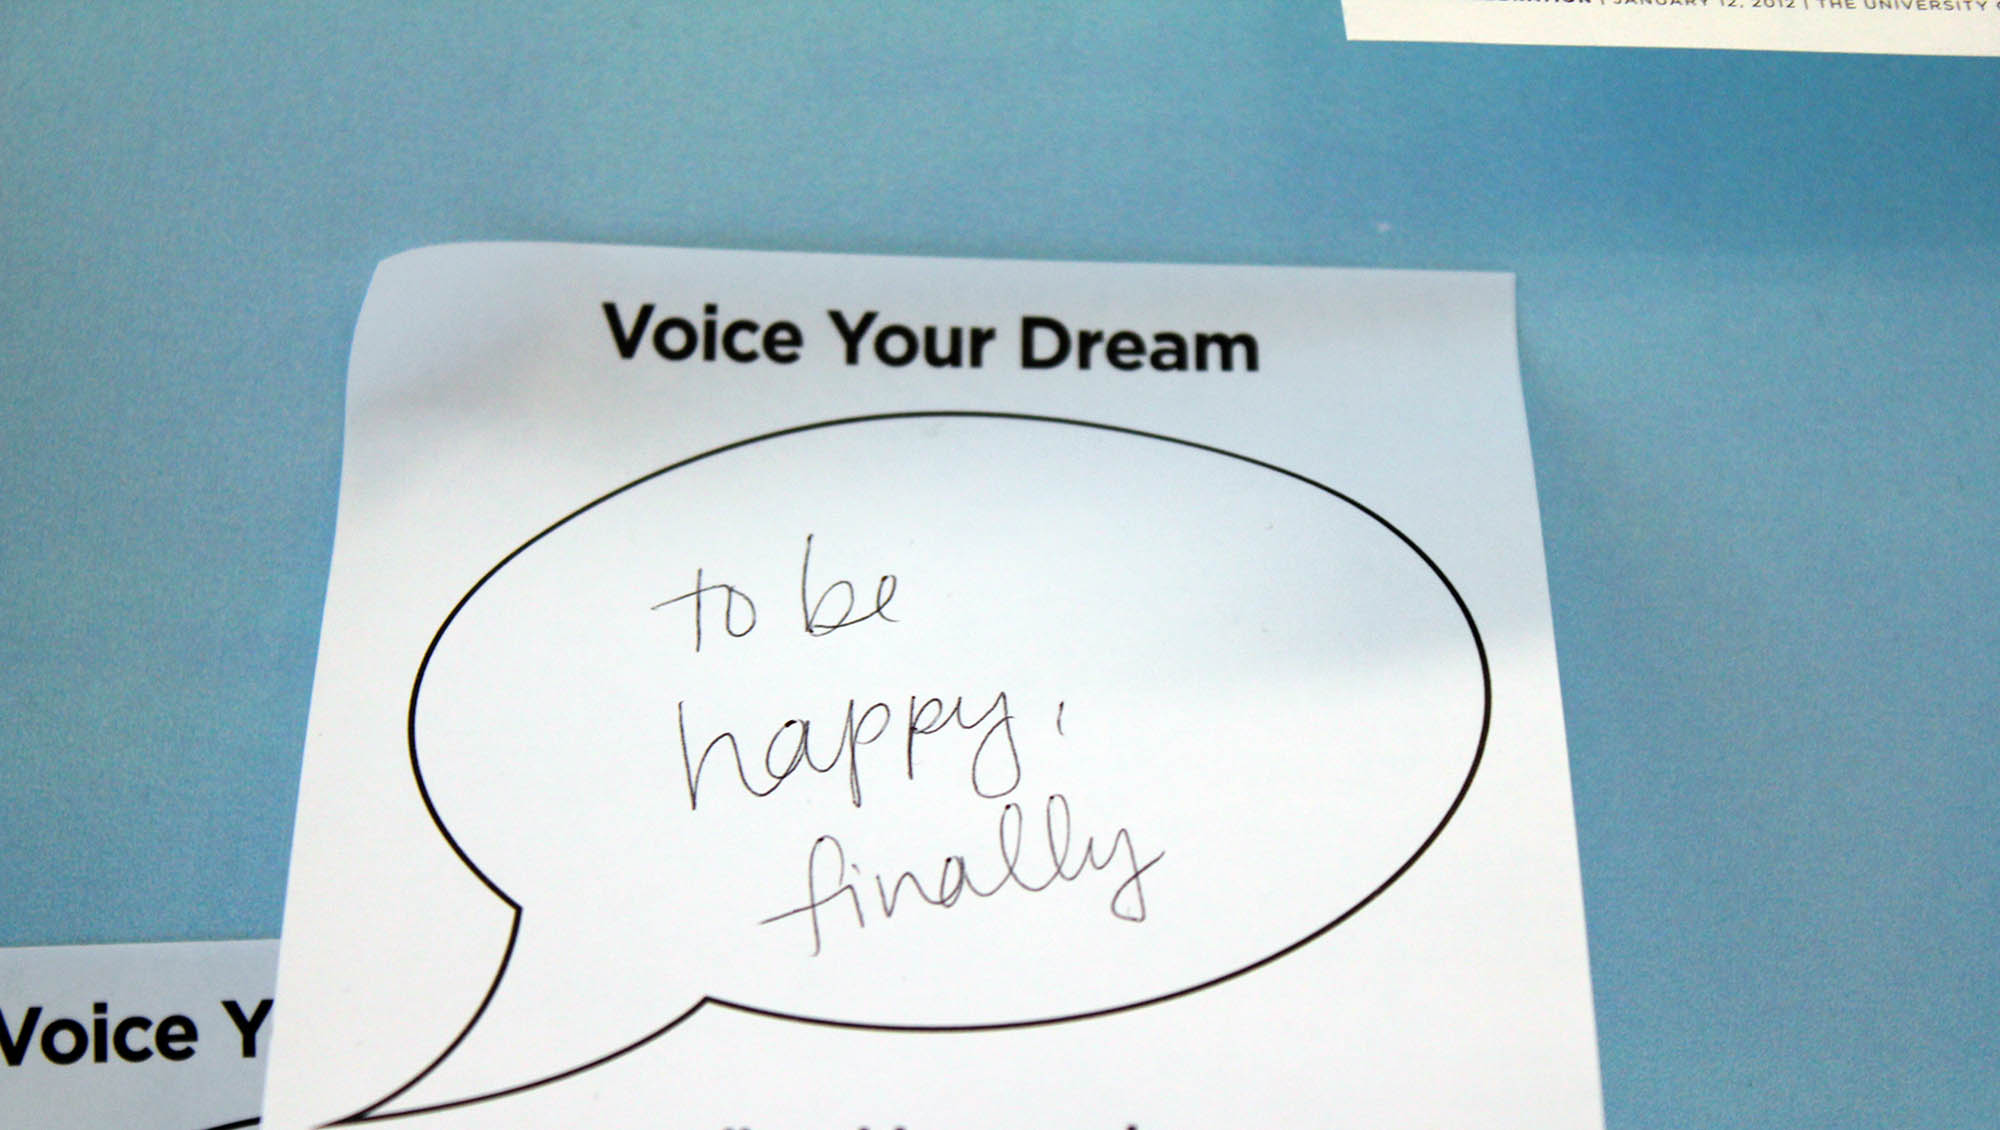 JANUARY 12, 2012 | THE UNIVERSITY
Voice Your Dream
to be
happy,
finally
Voice Y